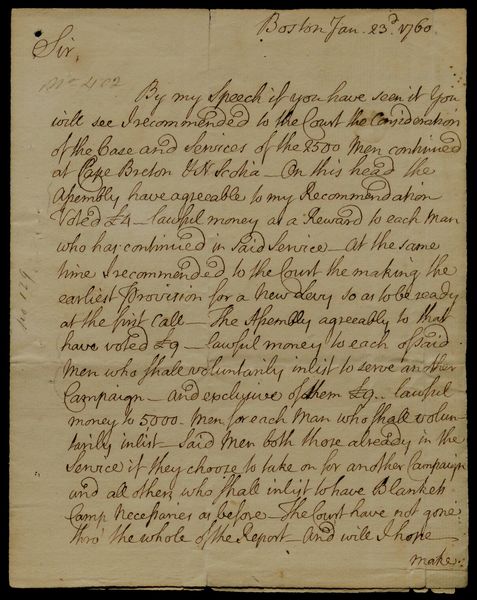 Boston Jan. 23d. 1760
Sir,
No 402
By my Speech if you have seen it You
will see I recommended to the Court the Consideration
of the Case and Services of the 2500 Men continued
at Cape Breton & N Scotia — On this head the
Assembly have agreeable to my Recommendation
Voted £4 — lawful money as a Reward to each Man
who has continued in said Service — At the same
time I recommended to the Court the making the
earliest Provision for a New Levy so as to be ready
at the first Call — The Assembly agreeably to that
have voted £9 — lawful money to each of said
Men who shall voluntarily inlist to serve another
Campaign — and exclusive of them £9 .. lawful
money to 5000 Men for each Man who shall volun-
tarily inlist — Said Men both those already in the
Service if they choose to take on for another Campaign
and all others who shall inlist to have Blankets
Camp Necessaries as before — The Court have not gone
thro' the whole of the Report and will I hope
make
No 129